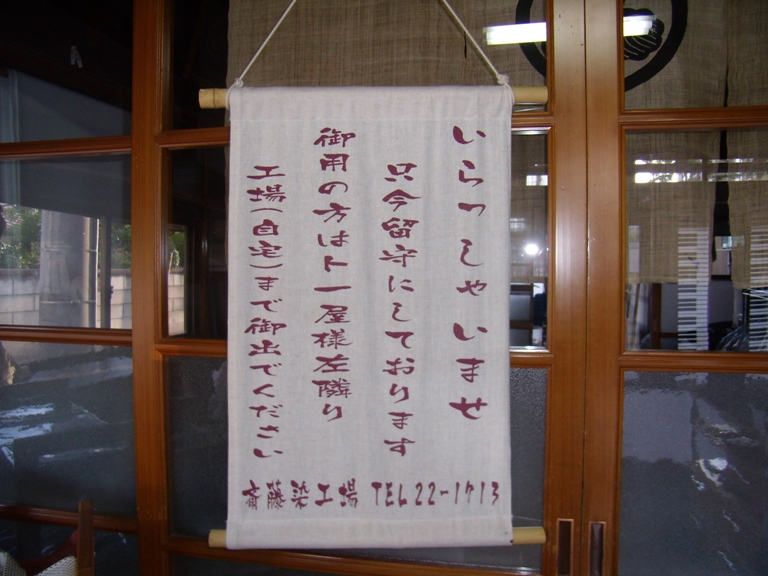 いらっしゃいませ
只今留守にしております
御用の方はト一屋様左隣り
工場(自宅)まで御出でください
斎藤染工場 TEL22-1713